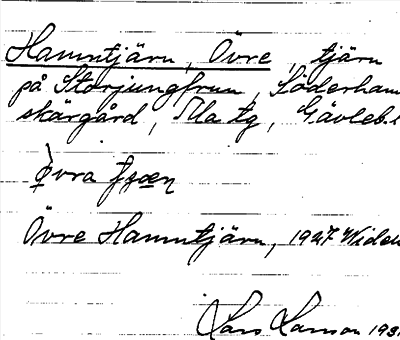 Hamntjärn, Övre, tjärn
på Storjungfrun, Söderham
skärgård, Ala tg, Gävleb.l
Övre Hamntjärn, 1927 Widé
Lars Larson 193